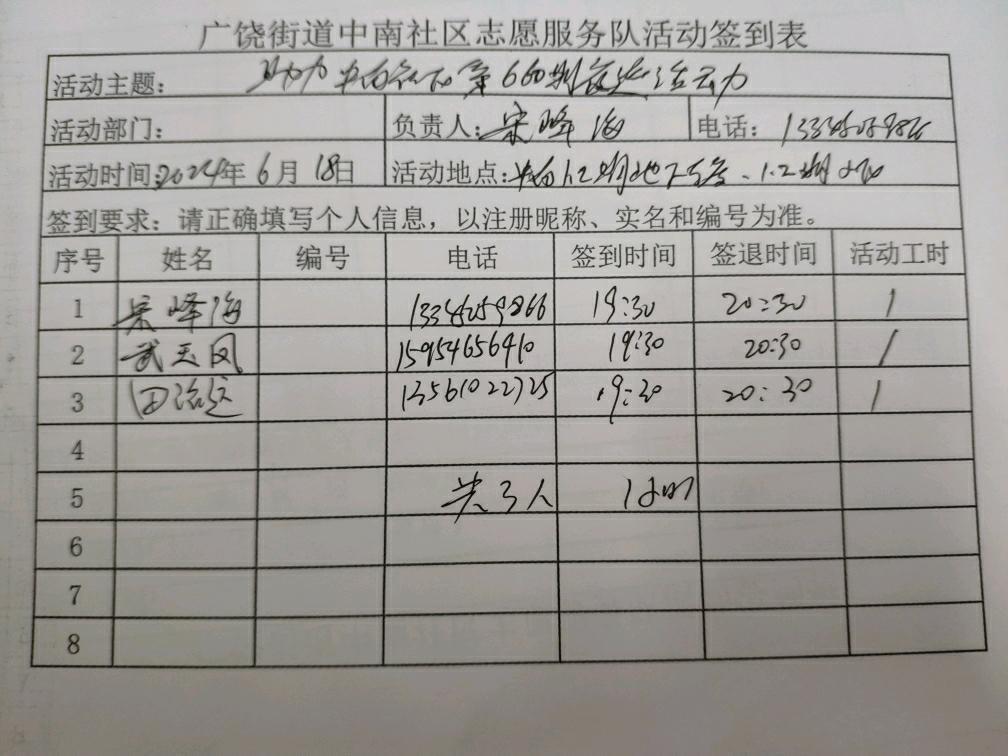 广饶街道中南社区志愿服务队活动签到表
活动主题: 助力中南社区第660期
活动部门: 负责人: 宋峰海 电话:
活动时间: 2024年6月18日 活动地点: 中南1.2期地下
签到要求: 请正确填写个人信息，以注册昵称、实名和编号为准。
序号 姓名 编号 电话 签到时间 签退时间 活动工时
1 宋峰海 19:30 20:30 1
2 武玉凤 15954656410 19:30 20:30 1
3 13561022725 19:30 20:30 1
4
5 共3人 1小时
6
7
8